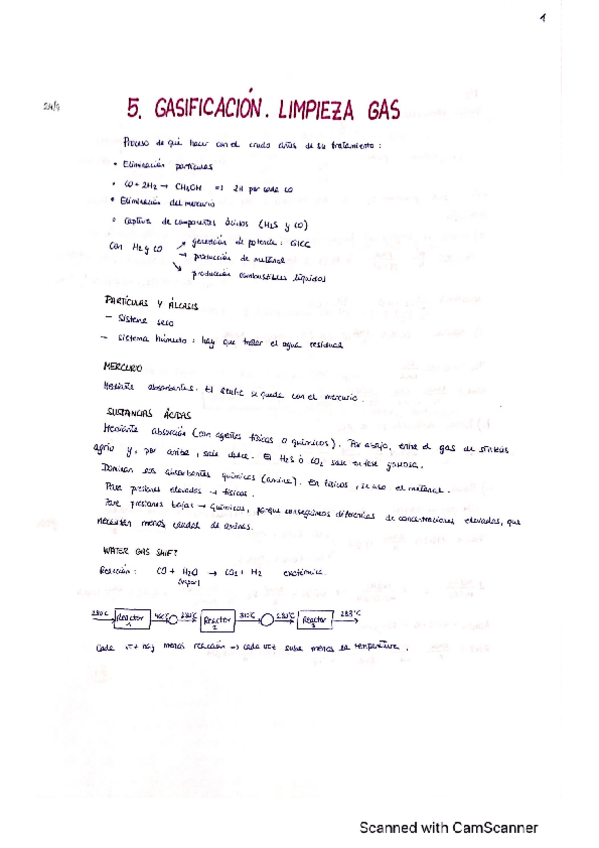 1
24/9
5. GASIFICACIÓN. LIMPIEZA GAS
Proceso de qué hacer con el crudo antes de su tratamiento:
• Eliminación partículas
• CO + 2H2 → CH3OH => 2H por cada CO
• Eliminación del mercurio
• Captura de compuestos ácidos (H2S y CO)
Con H2 y CO
→ generación de potencia: GICC
→ producción de metanol
→ producción combustibles líquidos
PARTÍCULAS Y ÁLCALIS
- Sistema seco
- Sistema húmedo: hay que tratar el agua residual
MERCURIO
Mediante absorbentes. El se queda con el mercurio.
SUSTANCIAS ÁCIDAS
Mediante absorción (con agentes físicos o químicos). Por abajo, entra el gas de síntesis
agrio y, por arriba, sale dulce. El H2S ó CO2 sale en fase gaseosa.
Dominan los absorbentes químicos (amina). En físicos, se usa el metanol.
Para presiones elevadas → físicos.
Para presiones bajas → químicos, porque conseguimos diferencias de concentraciones elevadas, que
necesitan menos caudal de aminas.
WATER GAS SHIFT
Reacción: CO + H2O → CO2 + H2 exotérmica
(vapor)
Reactor 1
Reactor 2
Reactor 3
Cada vez hay menos reacción => cada vez sube menos la temperatura.
Scanned with CamScanner